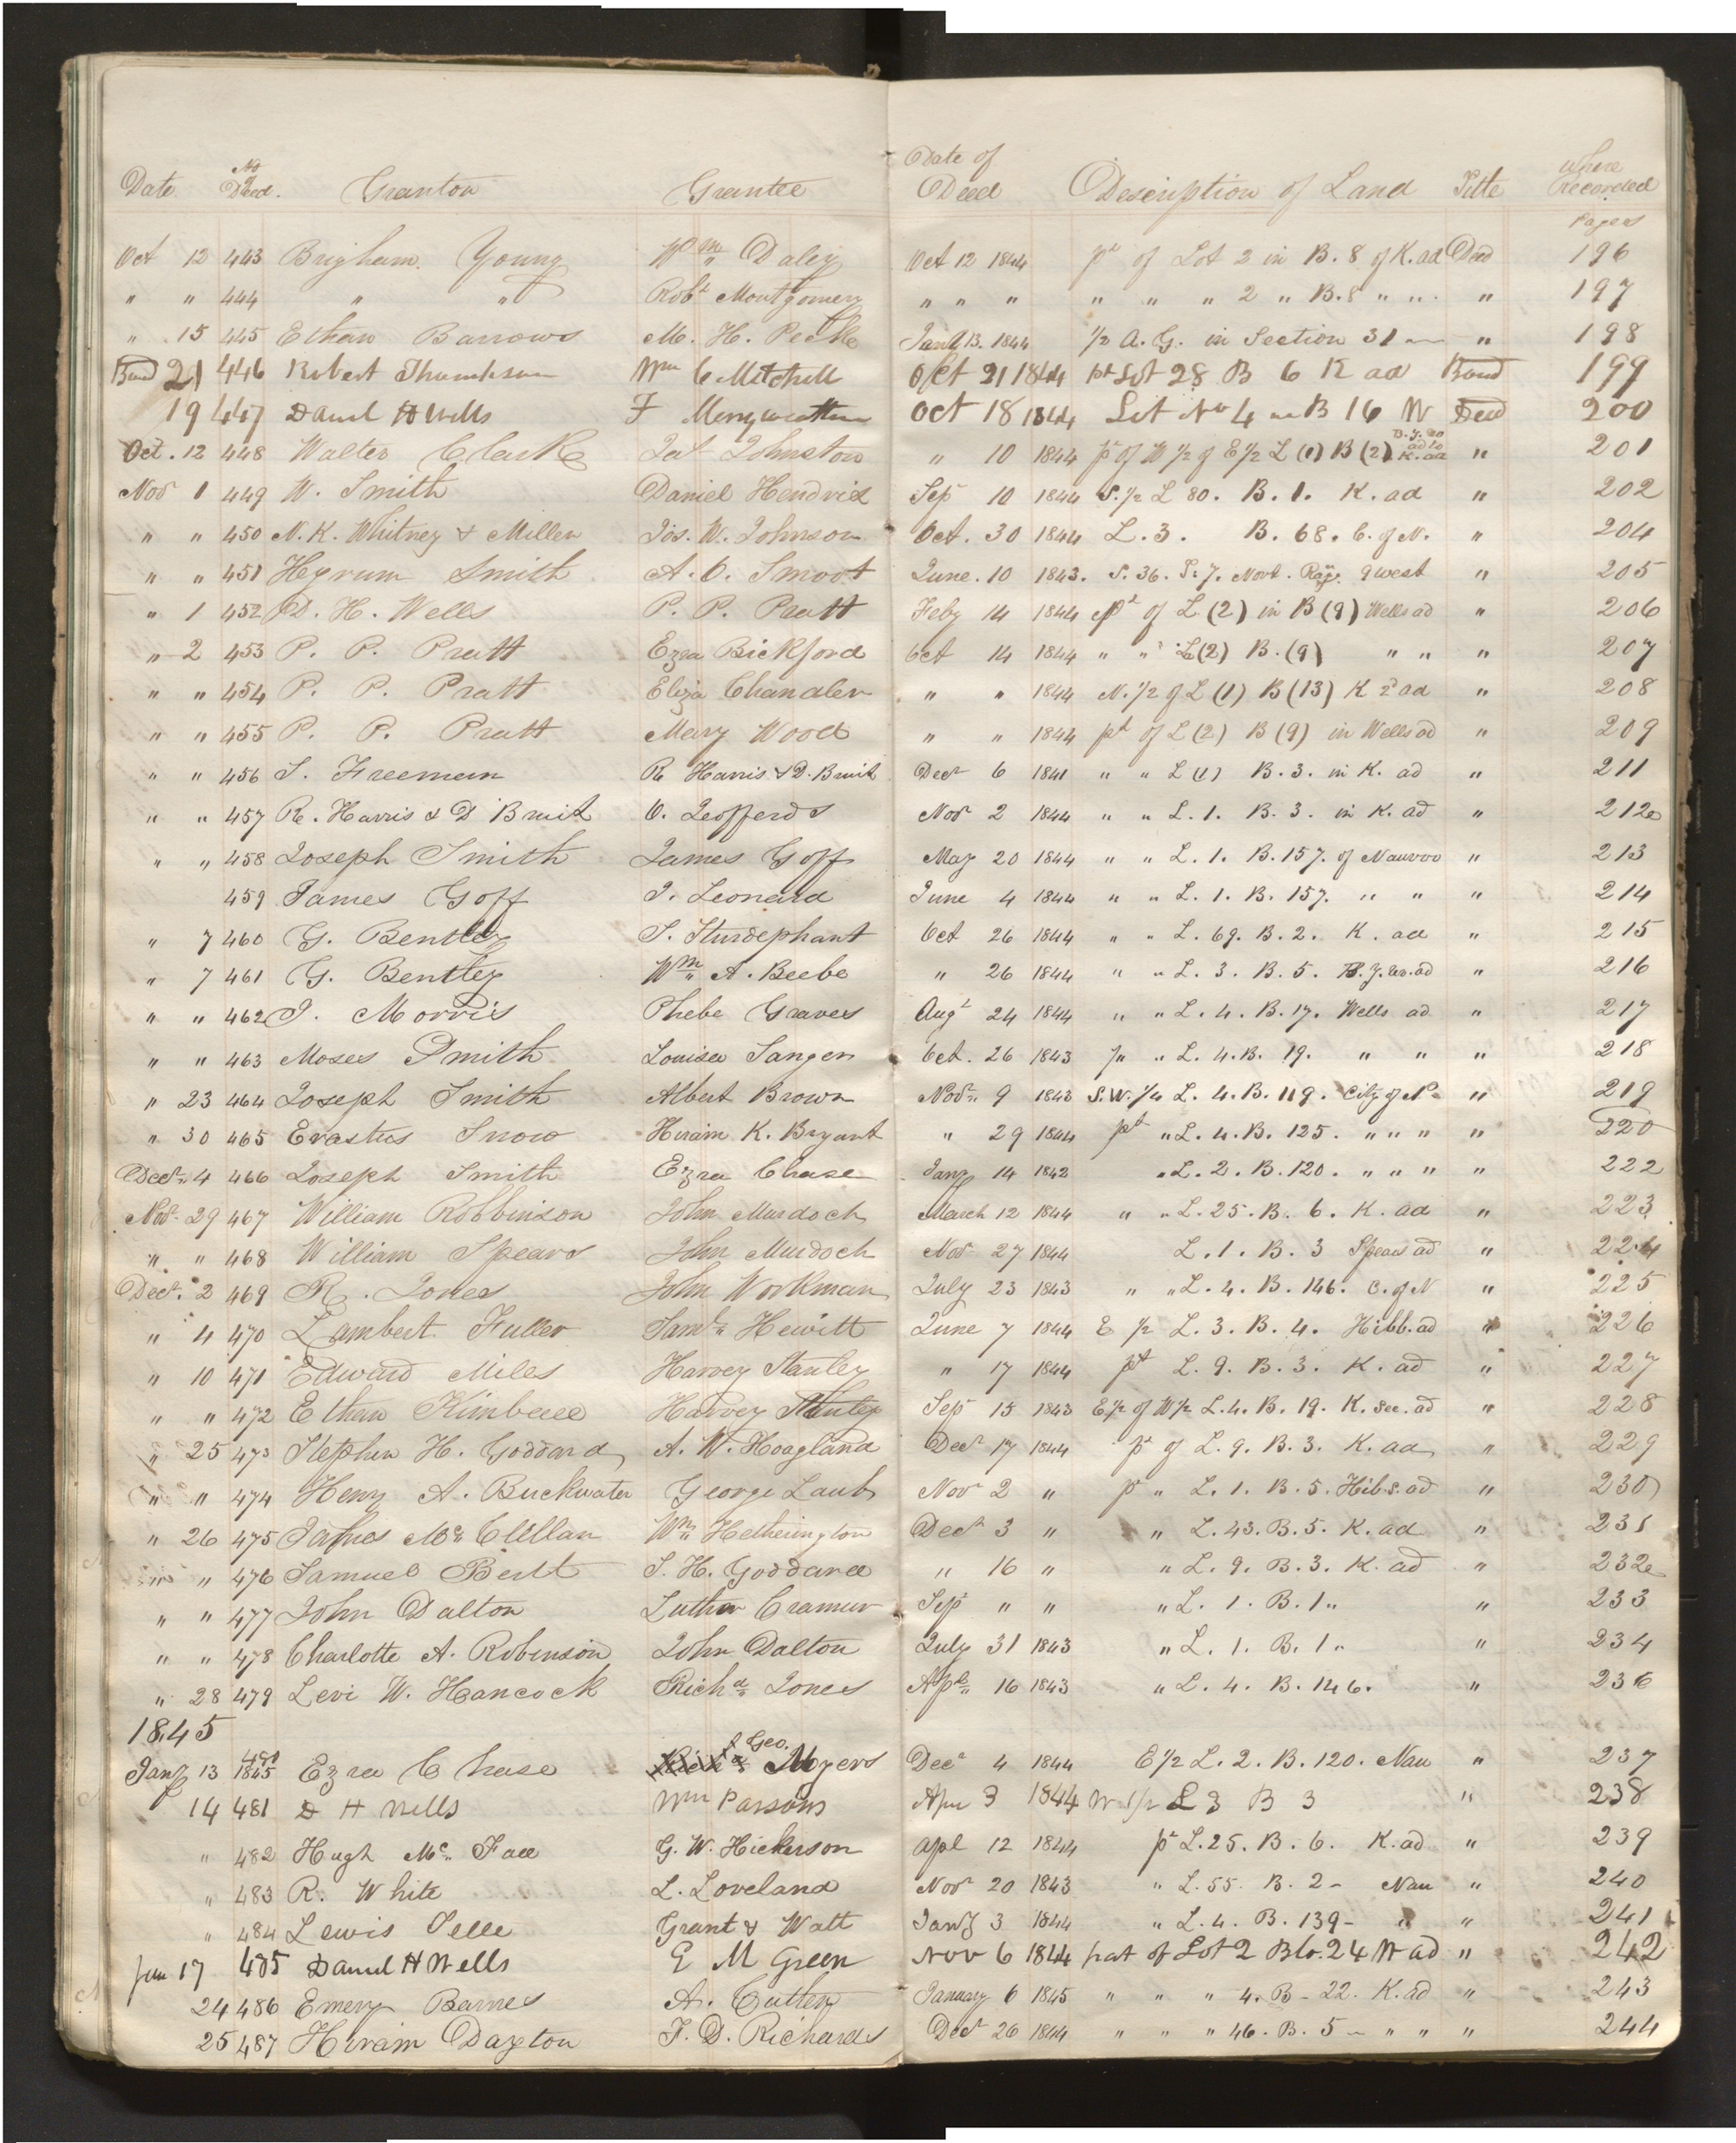 Date No of Deed. Grantor Grantee Date of Deed Description of Land Title where recorded
Pages
Oct 12 443 Brigham Young Wm Daley Oct 12 1844 pt of Lot 2 in B. 8 of K. ad Deed 196
" " 444 " " Robt Montgomery " " " " " " 2 " B. 8 " " " 197
" 15 445 Ethan Barrows M. H. Peck 13. 1844 1/2 A. G. in Section 31 " 198
Bond 21 446 Robert Thompson Wm C Mitchell Oct 21 1844 pt Lot 28 B 6 K ad Bond 199
19 447 Daniel H Wells F Merryweather Oct 18 1844 Lot No 4 in B 16 W Deed 200
Oct. 12 448 Walter Clark Johnston " 10 1844 pt of W 1/2 of E 1/2 L (1) B (2) K. ad " 201
Nov 1 449 W. Smith Daniel Hendrix Sep 10 1844 S. 1/2 L 80. B. 1. K. ad " 202
" " 450 N. K. Whitney & Miller Jos. W. Johnson Oct. 30 1844 L. 3. B. 68. C. of N. " 204
" " 451 Hyrum Smith A. O. Smoot June. 10 1843. S. 36. T. 7. Nort. Rag. 9 west " 205
" 1 452 D. H. Wells P. P. Pratt Feby 14 1844 pt of L (2) in B (9) Wells ad " 206
" 2 453 P. P. Pratt Ezra Bickford Oct 14 1844 " " L (2) B. (9) " " " 207
" " 454 P. P. Pratt Eliza Chandler " " 1844 N. 1/2 of L (1) B (13) K 2d ad " 208
" " 455 P. P. Pratt Mary Wood " " 1844 pt of L (2) B (9) in Wells ad " 209
" " 456 S. Freeman R Harris & D. Bruit Decr 6 1841 " " L (1) B. 3. in K. ad " 211
" " 457 R. Harris & D Bruit O. Jeofferds Nov 2 1844 " " L. 1. B. 3. in K. ad " 212
" " 458 Joseph Smith James Goff May 20 1844 " " L. 1. B. 157. of Nauvoo " 213
459 James Goff J. Leonard June 4 1844 " " L. 1. B. 157. " " " 214
" 7 460 G. Bentley S. Sturdephant Oct 26 1844 " " L. 69. B. 2. K. ad " 215
" 7 461 G. Bentley Wm A. Beebe " 26 1844 " " L. 3. B. 5. ad " 216
" " 462 J. Morris Phebe Graves Augt 24 1844 " " L. 4. B. 17. Wells ad " 217
" " 463 Moses Smith Louisa Sanger Oct. 26 1843 p " L. 4. B. 19. " " " 218
" 23 464 Joseph Smith Albert Brown Novr 9 1843 S. W. 1/4 L. 4. B. 119. City of N " 219
" 30 465 Erastus Snow Hiram K. Bryant " 29 1844 pt " L. 4. B. 125. " " " " 220
Decr 4 466 Joseph Smith Ezra Chase Jany 14 1842 " L. 2. B. 120. " " " " 222
Novr 29 467 William Robbinson John Murdoch March 12 1844 " " L. 25. B. 6. K. ad " 223
" " 468 William Spears John Murdoch Nov 27 1844 L. 1. B. 3 Spears ad " 224
Decr. 2 469 R. Jones John Workman July 23 1843 " " L. 4. B. 146. C. of N " 225
" 4 470 Lambert Fuller Saml Hewitt June 7 1844 E 1/2 L. 3. B. 4. Hibb. ad " 226
" 10 471 Edward Miles Harvey Stanley " 17 1844 pt L. 9. B. 3. K. ad " 227
" " 472 Ethan Kimball Harvey Stanley Sep 15 1843 E 1/2 of W 1/2 L. 4. B. 19. K. Sec. ad " 228
" 25 473 Stephen H. Goddard A. W. Hoagland Decr 17 1844 pt of L. 9. B. 3. K. ad " 229
" " 474 Henry A. Buckwater George Laub Novr 2 " p " L. 1. B. 5. Hibs. ad " 230
" 26 475 James Mc Clellan Wm Hetherington Decr 3 " " L. 43. B. 5. K. ad " 231
" " 476 Samuel Bent S. H. Goddard " 16 " " L. 9. B. 3. K. ad " 232
" " 477 John Dalton Luther Cramer Sep " " " L. 1. B. 1 " " 233
" " 478 Charlotte A. Robinson John Dalton July 31 1843 " L. 1. B. 1 " " 234
" 28 479 Levi W. Hancock Richd Jones Apl 16 1843 " L. 4. B. 146. " 236
1845
Jany 13 480 1845 Ezra Chase Geo. Moyers Decr 4 1844 E 1/2 L. 2. B. 120. Nau " 237
14 481 D H Wells Wm Parsons Apr 3 1844 W 1/2 L 3 B 3 " 238
" 482 Hugh Mc Fall G. W. Hickerson Apl 12 1844 pt L. 25. B. 6. K. ad " 239
" 483 R. White L. Loveland Novr 20 1843 " L. 55. B. 2 - Nau " 240
" 484 Lewis Telle Grant & Watt Jany 3 1844 " L. 4. B. 139 - " " 241
Jan 17 485 Daniel H Wells E M Green Nov 6 1844 part of Lot 2 Blo. 24 W ad " 242
24 486 Emery Barnes A. Cutler January 6 1845 " " " 4. B - 22. K. ad " 243
25 487 Hiram Dayton F. D. Richards Decr 26 1844 " " " 46. B. 5 - " " " 244